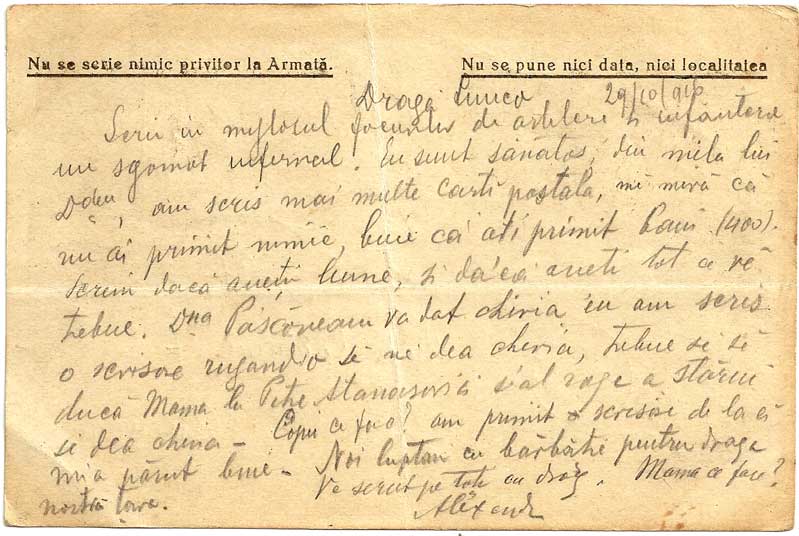 Nu se scrie nimic privitor la Armată.
Nu se pune nici data, nici localitatea
Draga 29/10/916
Scriu in mijlocul focurilor de artilerie si infanterie
un sgomot infernal. Eu sunt sanatos, din mila lui
D zeu, am scris mai multe carti postala, mă miră că
nu ai primit nimic, bine că ati primit bani (400).
Scrieti dacă aveti lemne, si dacă aveti tot ce vă
trebue. Dna va dat chiria eu am scris
o scrisoare rugand-o să ne dea chiria, trebue si să
ducă Mama la Petre s-al roge a stărui
si dea chiria – Copii ce fac? am primit o scrisoare de la ei
mi a părut bine – Noi luptăm cu bărbătie pentru draga
nostră tara. Va serut pe toti cu drag. Mama ce face?
Alexandr